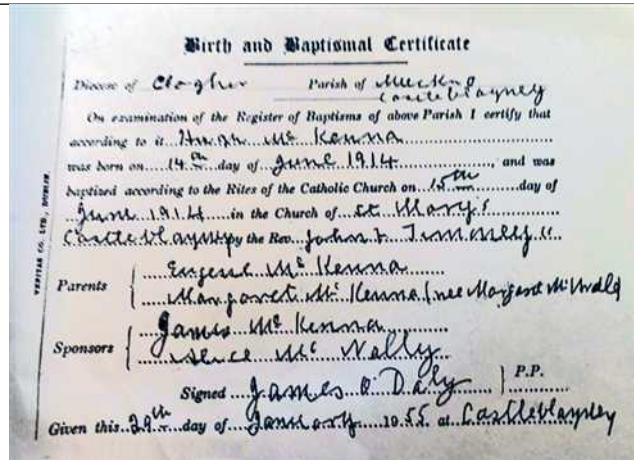 Birth and Baptismal Certificate
Diocese of Clogher Parish of Muckno
Castleblayney
On examination of the Register of Baptisms of above Parish I certify that
according to it Hugh Mc Kenna
was born on 14th day of June 1914, and was
baptized according to the Rites of the Catholic Church on 15th day of
June 1914 in the Church of St Mary's
Castleblayney by the Rev. John
Parents Eugene Mc Kenna
Margaret Mc Kenna (nee Margaret
Sponsors James Mc Kenna
Mc Nally
Signed James O'Daly P.P.
Given this 29th day of January 1955 at Castleblayney
VERITAS CO. LTD., DUBLIN.